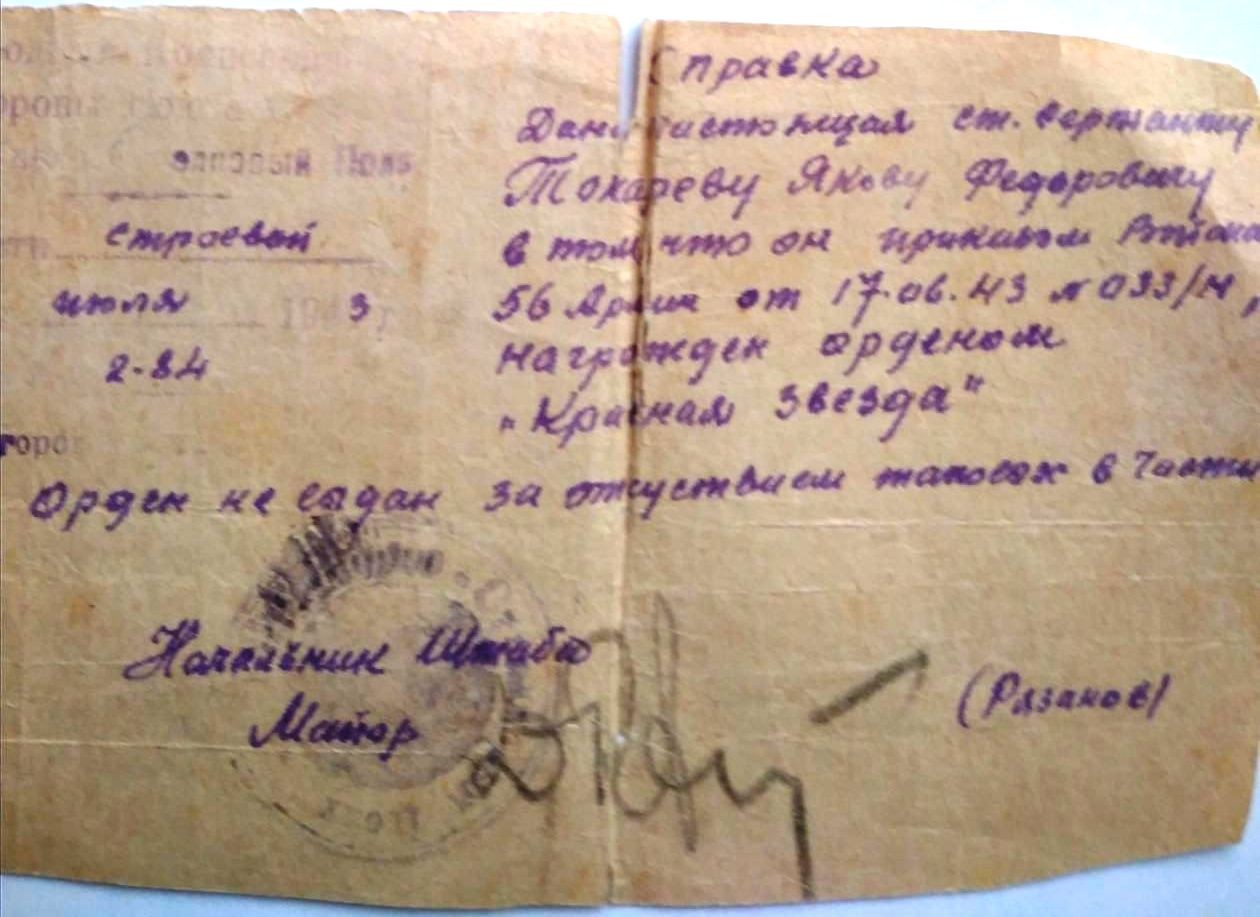 запасный Полк
строевой
июля 194 3 г
2-84
Справка
Дана настоящая ст. Сержанту
Токареву Якову Федоровичу
в том что он приказом
56 Армии от 17.06.43 № 033/Н,
награжден орденом
„Красная Звезда"
Орден не выдан за отсуствием таковых в Части
Начальник Штаба
Майор
(Рязанов)